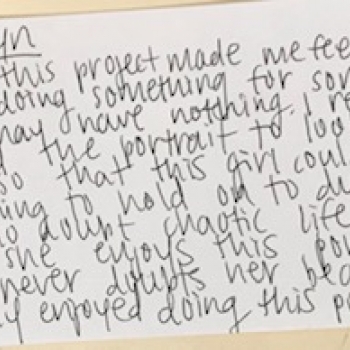 yn
this project made me fee
doing something for som
may have nothing. I re
the portrait to loo
so that this girl coul
ing to hold on to du
o doubt chaotic life
she enjoys this por
never doubts her bea
y enjoyed doing this p